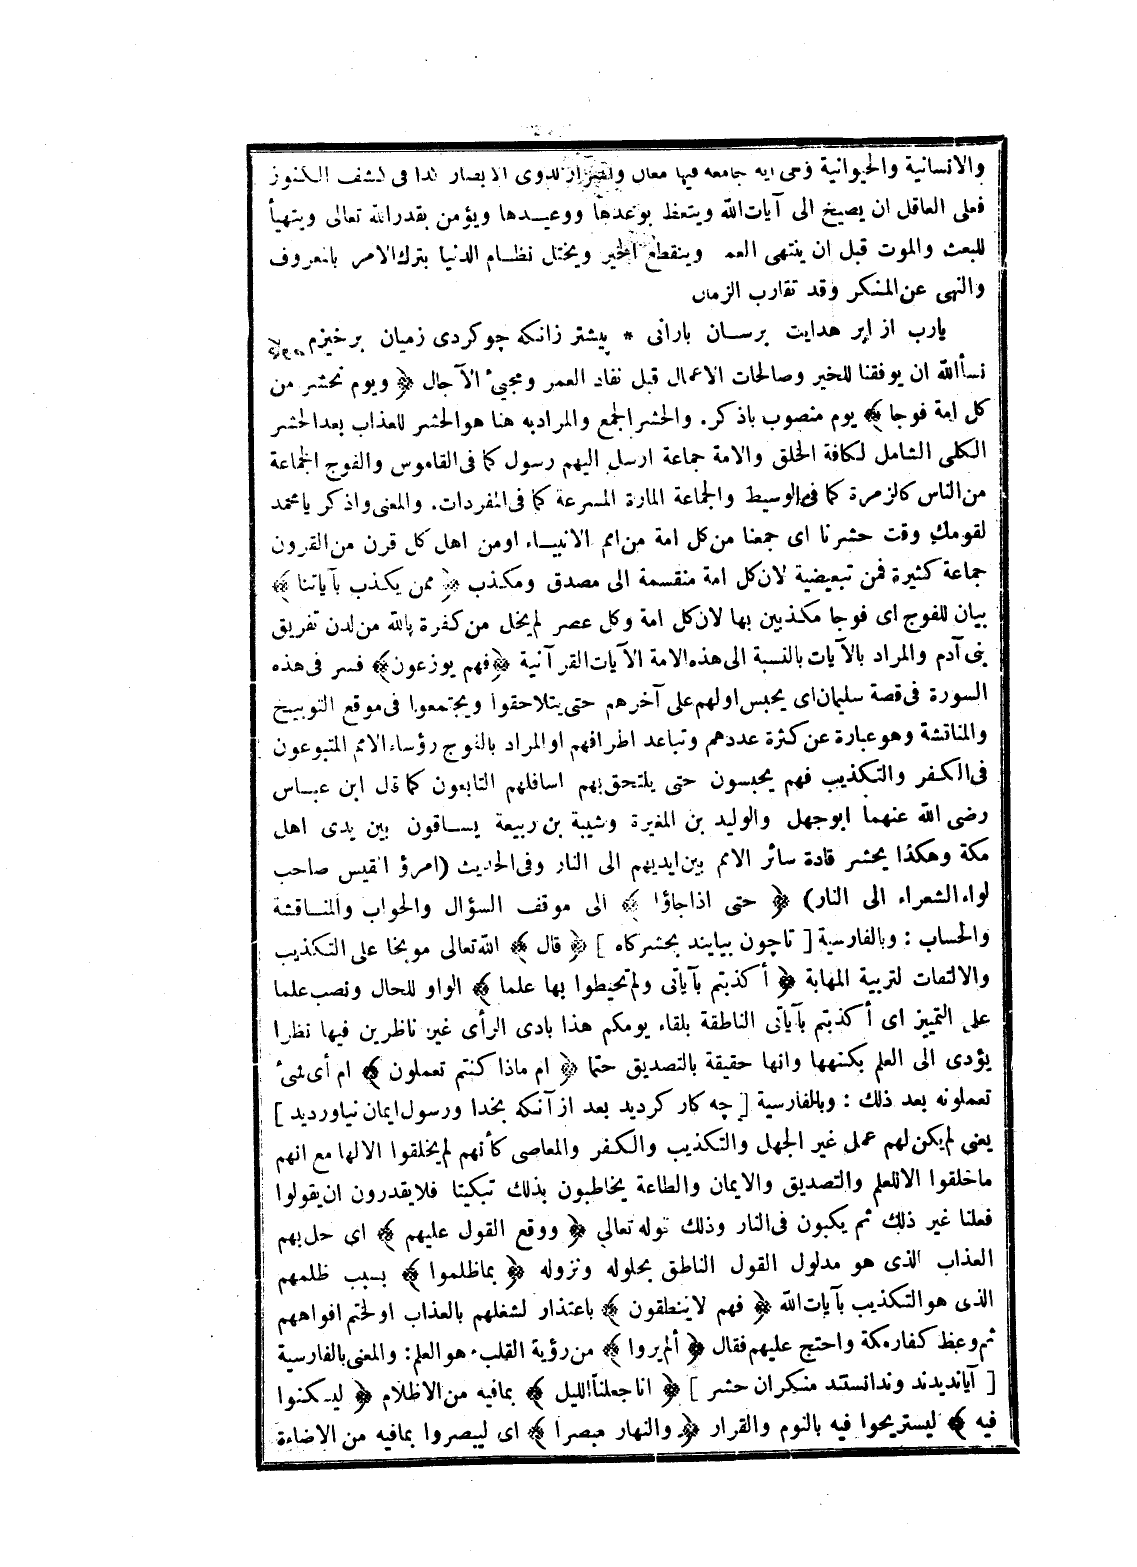 والانسانية والحيوانية وهى آية جامعة فيها معان واسرار لذوى الابصار كذا فى كشف الكنوز
فعلى العاقل ان يصيخ الى آيات الله ويتعظ بوعدها ووعيدها ويؤمن بقدرالله تعالى ويتهيأ
للبعث والموت قبل ان ينتهى العمر وينقطع الخير ويختل نظام الدنيا بترك الامر بالمعروف
والنهى عن المنكر وقد تقارب الزمان
يارب از ابر هدايت برسان بارانى * پيشتر زانكه چوكردى زميان برخيزم
نسأالله ان يوفقنا للخير وصالحات الاعمال قبل نفاد العمر ومجيئ الآجال ﴿ ويوم نحشر من
كل امة فوجا ﴾ يوم منصوب باذكر. والحشر الجمع والمرادبه هنا هو الحشر للعذاب بعد الحشر
الكلى الشامل لكافة الخلق والامة جماعة ارسل اليهم رسول كما فى القاموس والفوج الجماعة
من الناس كالزمرة كما فى الوسيط والجماعة المارة المسرعة كما فى المفردات. والمعنى واذكر يامحمد
لقومك وقت حشرنا اى جمعنا من كل امة من امم الانبياء اومن اهل كل قرن من القرون
جماعة كثيرة فمن تبعيضية لان كل امة منقسمة الى مصدق ومكذب ﴿ ممن يكذب بآياتنا ﴾
بيان للفوج اى فوجا مكذبين بها لان كل امة وكل عصر لم يخل من كفرة بالله من لدن تفريق
بنى آدم والمراد بالآيات بالنسبة الى هذه الامة الآيات القرآنية ﴿ فهم يوزعون ﴾ فسر فى هذه
السورة فى قصة سليمان اى يحبس اولهم على آخرهم حتى يتلاحقوا ويجتمعوا فى موقع التوبيخ
والمناقشة وهو عبارة عن كثرة عددهم وتباعد اطرافهم او المراد بالفوج رؤساء الامم المتبوعون
فى الكفر والتكذيب فهم يحبسون حتى يلتحق بهم اسافلهم التابعون كما قال ابن عباس
رضى الله عنهما ابوجهل والوليد بن المغيرة وشيبة بن ربيعة يساقون بين يدى اهل
مكة وهكذا يحشر قادة سائر الامم بين ايديهم الى النار وفى الحديث (امرؤ القيس صاحب
لواء الشعراء الى النار) ﴿ حتى اذا جاؤا ﴾ الى موقف السؤال والجواب والمناقشة
والحساب : وبالفارسية [ تاچون بيايند بحشركاه ] ﴿ قال ﴾ الله تعالى موبخا على التكذيب
والالتفات لتربية المهابة ﴿ أكذبتم بآياتى ولم تحيطوا بها علما ﴾ الواو للحال ونصب علما
على التمييز اى أكذبتم بآياتى الناطقة بلقاء يومكم هذا بادى الرأى غير ناظرين فيها نظرا
يؤدى الى العلم بكنهها وانها حقيقة بالتصديق حتما ﴿ ام ماذا كنتم تعملون ﴾ ام أى شئ
تعملونه بعد ذلك : وبالفارسية [ چه كار كرديد بعد از آنكه بخدا ورسول ايمان نياورديد ]
يعنى لم يكن لهم عمل غير الجهل والتكذيب والكفر والمعاصى كأنهم لم يخلقوا الالها مع انهم
ماخلقوا الاللعلم والتصديق والايمان والطاعة يخاطبون بذلك تبكيتا فلايقدرون ان يقولوا
فعلنا غير ذلك ثم يكبون فى النار وذلك قوله تعالى ﴿ ووقع القول عليهم ﴾ اى حل بهم
العذاب الذى هو مدلول القول الناطق بحلوله ونزوله ﴿ بماظلموا ﴾ بسبب ظلمهم
الذى هو التكذيب بآيات الله ﴿ فهم لاينطقون ﴾ باعتذار لشغلهم بالعذاب او لختم افواههم
ثم وعظ كفار مكة واحتج عليهم فقال ﴿ ألم يروا ﴾ من رؤية القلب وهو العلم: والمعنى بالفارسية
[ آيانديدند وندانستند منكران حشر ] ﴿ انا جعلنا الليل ﴾ بمافيه من الاظلام ﴿ ليسكنوا
فيه ﴾ ليستريحوا فيه بالنوم والقرار ﴿ والنهار مبصرا ﴾ اى ليبصروا بمافيه من الاضاءة